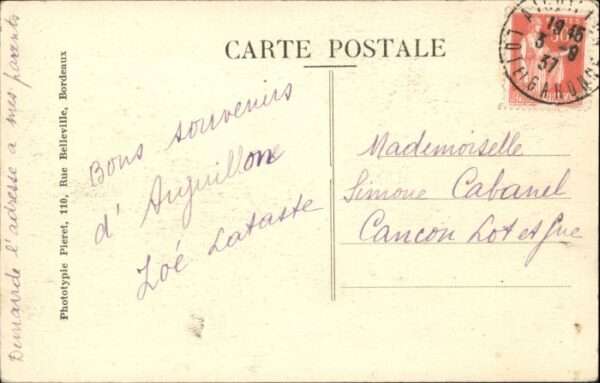 CARTE POSTALE
Demande l'adresse a mes parents
Phototypie Pieret, 110, Rue Belleville, Bordeaux
Bons souvenirs
d'Aiguillone
Zoé Lataste
19 45
3 - 9
37
LOT-ET-GARONNE
Mademoiselle
Simone Cabanel
Cancon Lot et Gne